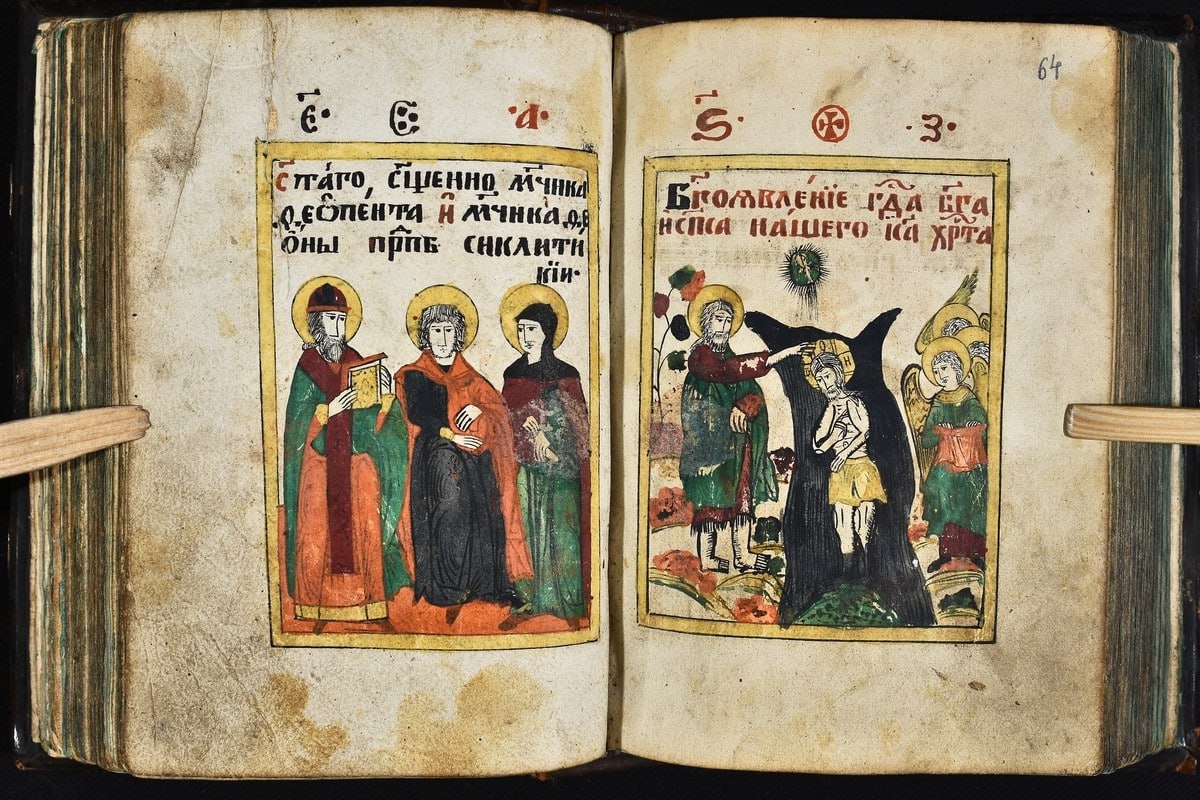 є҃· Є ·а·
ст҃а́го, сщ҃е́нно мч҃ника
ѳеѡпе́нта и҆ мч҃ника ѳе
ѡ́ны прпⷣб сиклити
кїи·
64
ѕ҃· ·з·
Бг҃оѧвле́нїе гдⷭ҇а бг҃а
и сп҃са на́шего і҆с҃а хр҃та